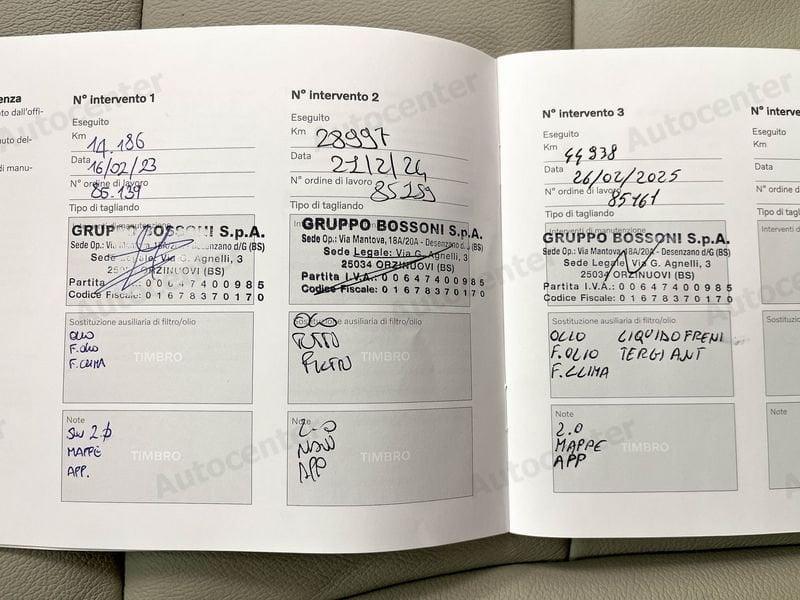 enza
to dall'offi-
nuto del-
di manu-
N° intervento 1
Eseguito
Km 14.186
Data 16/02/23
N° ordine di lavoro 85.139
Tipo di tagliando
GRUPPO BOSSONI S.p.A.
Sede Op.: Via Mantova, 18A/20A - Desenzano d/G (BS)
Sede Legale: Via G. Agnelli, 3
25034 ORZINUOVI (BS)
Partita I.V.A.: 00647400985
Codice Fiscale: 01678370170
Sostituzione ausiliaria di filtro/olio
OLIO
F. OLIO
F. CLIMA
TIMBRO
Note
SW 2.0
MAPPE
APP.
TIMBRO
N° intervento 2
Eseguito
Km 28997
Data 21/2/24
N° ordine di lavoro 85159
Tipo di tagliando
GRUPPO BOSSONI S.p.A.
Sede Op.: Via Mantova, 18A/20A - Desenzano d/G (BS)
Sede Legale: Via G. Agnelli, 3
25034 ORZINUOVI (BS)
Partita I.V.A.: 00647400985
Codice Fiscale: 01678370170
Sostituzione ausiliaria di filtro/olio
TIMBRO
Note
2.0
APP
TIMBRO
N° intervento 3
Eseguito
Km 44938
Data 26/02/2025
N° ordine di lavoro 85161
Tipo di tagliando
Interventi di manutenzione
GRUPPO BOSSONI S.p.A.
Sede Op.: Via Mantova, 18A/20A - Desenzano d/G (BS)
Sede Legale: Via G. Agnelli, 3
25034 ORZINUOVI (BS)
Partita I.V.A.: 00647400985
Codice Fiscale: 01678370170
Sostituzione ausiliaria di filtro/olio
OLIO LIQUIDO FRENI
F. OLIO TERGI ANT
F. CLIMA
TIMBRO
Note
2.0
MAPPE
APP
TIMBRO
N° interve
Eseguito
Km
Data
N° ordine d
Tipo di tagl
Interventi d
Sostituzion
Note
Autocenter